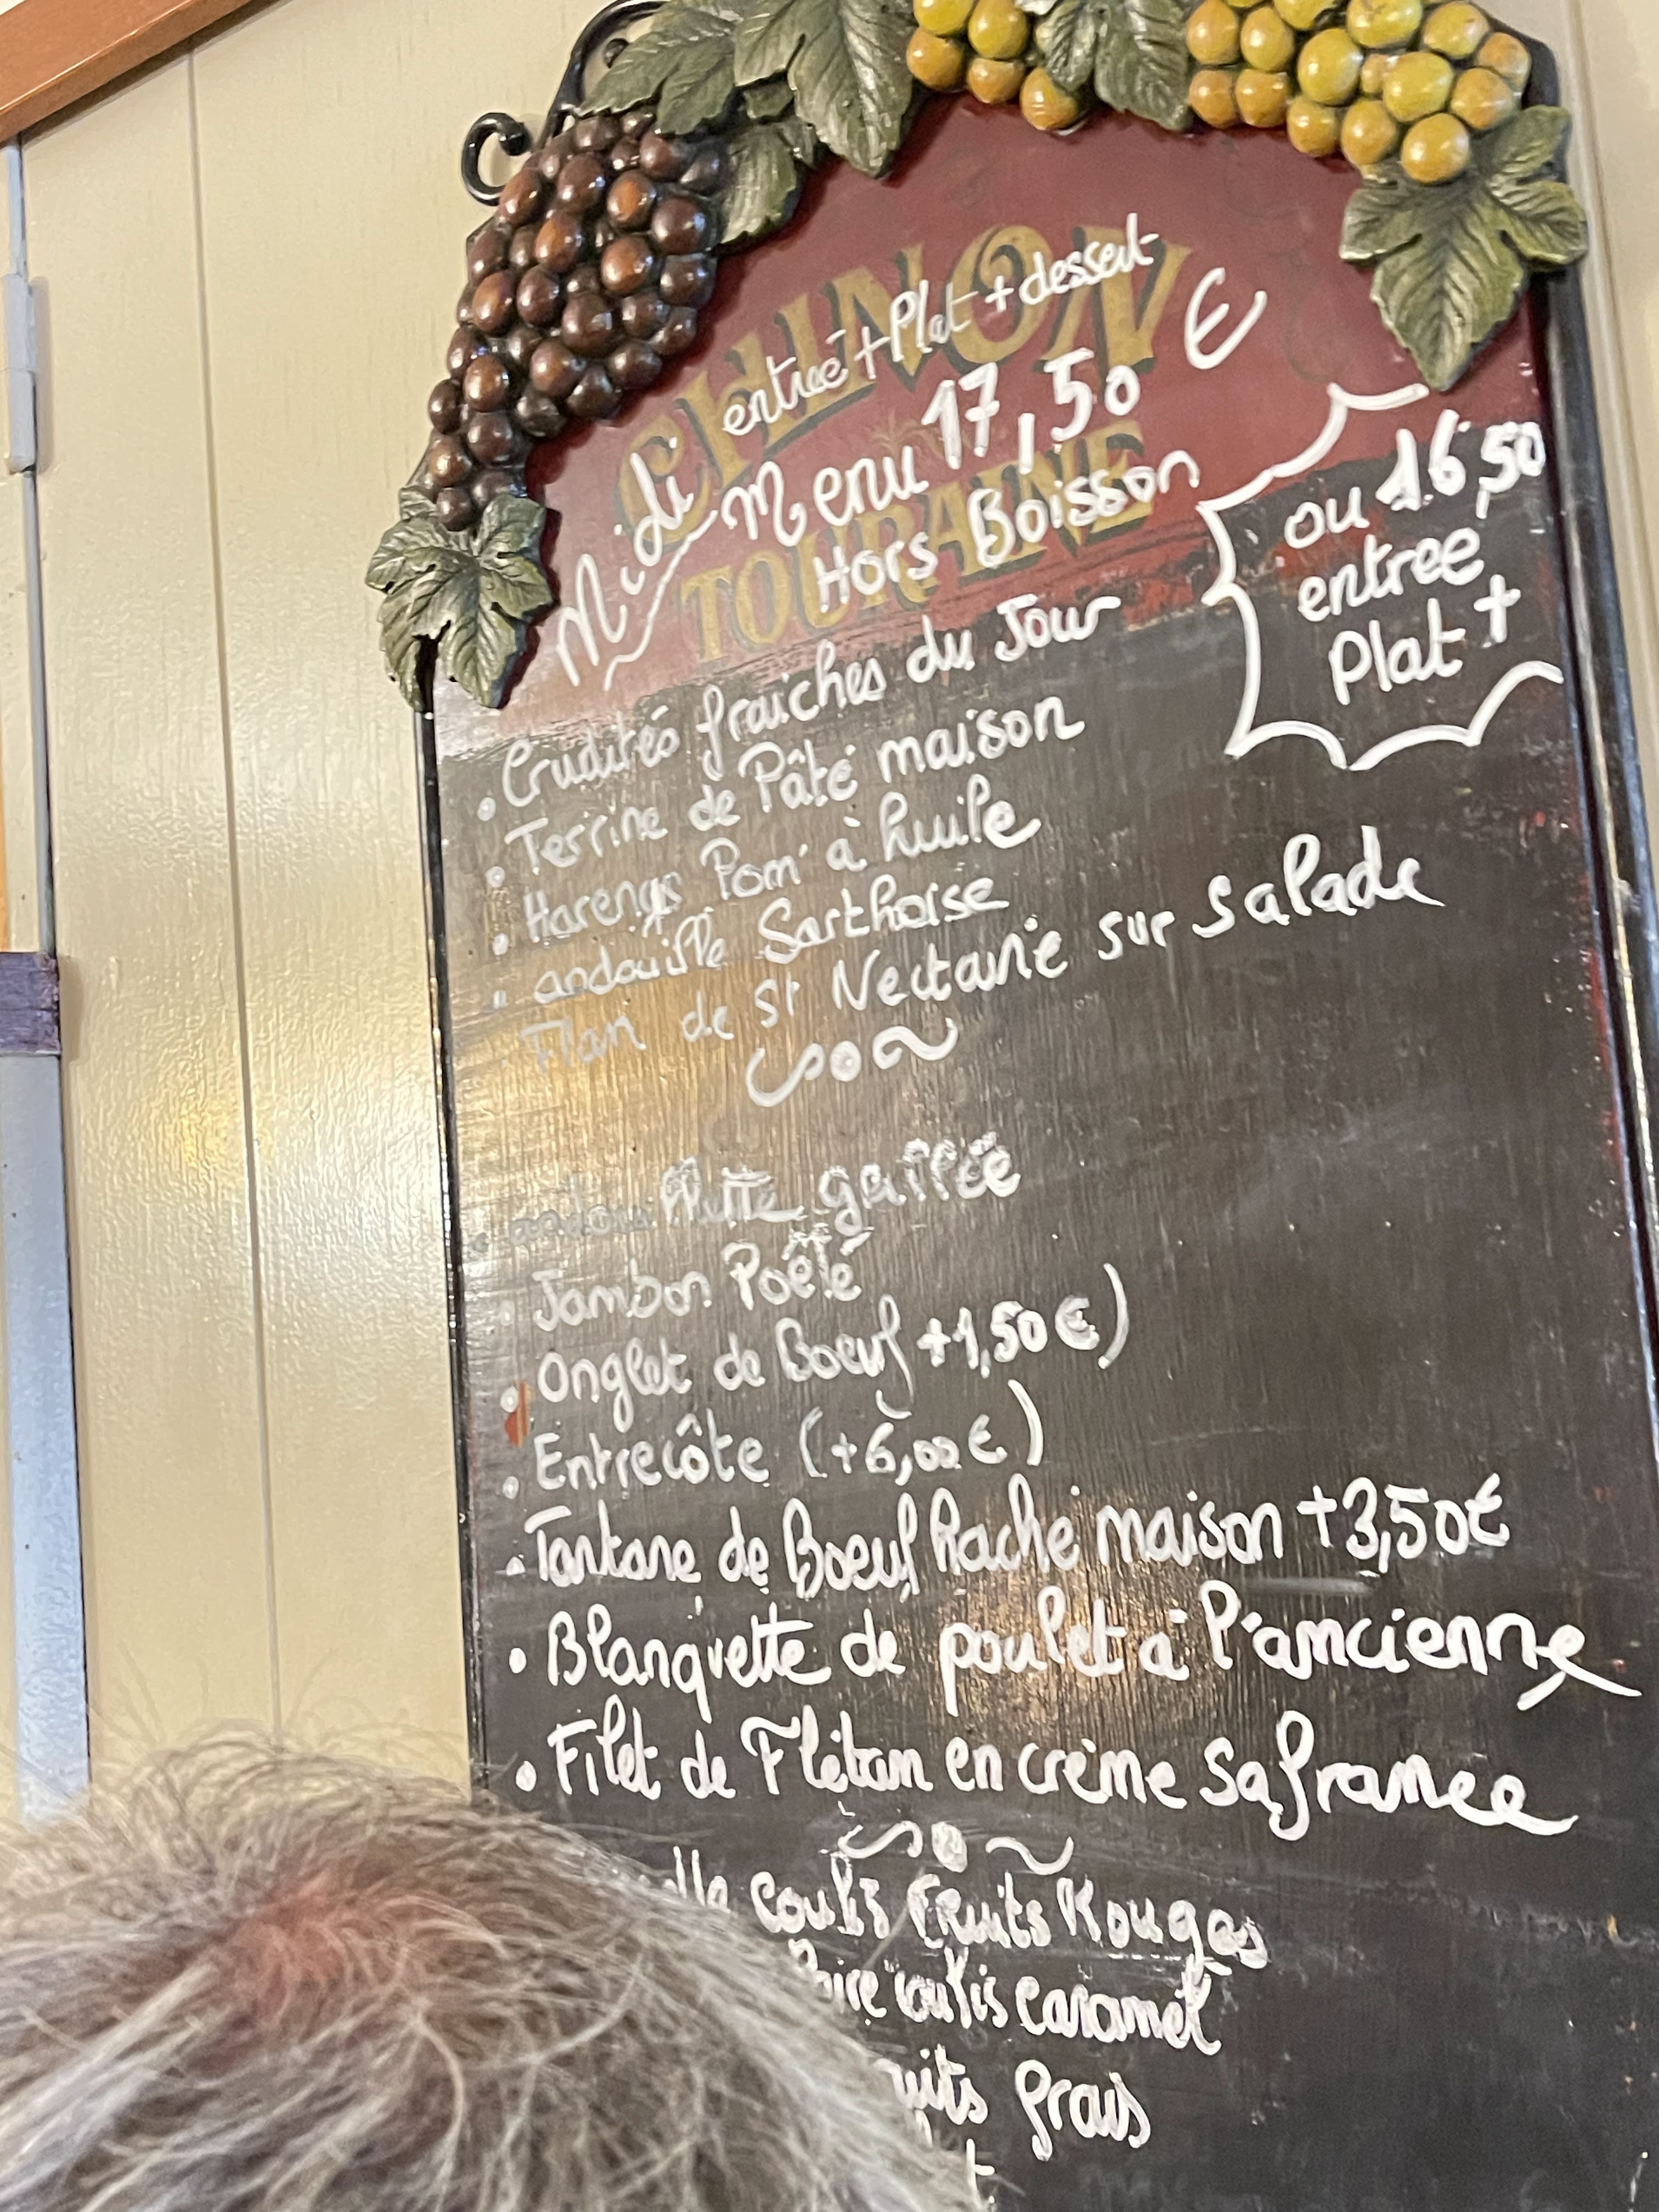 CHINON
TOURAINE
entreé + Plat + dessert
Midi Menu 17,50 €
Hors Boisson
ou 16,50
entree
Plat +
• Crudités fraiches du Jour
• Terrine de Pâté maison
• Harengs Pom' à huile
• andouille Sarthoise
" Flan de St Nectaire sur Salade
grillée
• Jambon Poêlé
• Onglet de Boeuf +1,50 €)
• Entrecôte (+6,00 €)
• Tartare de Boeuf haché maison +3,50€
• Blanquette de poulet à l'ancienne
• Filet de Flétan en crème Safranee
coulis Fruits Rouges
coulis caramel
frais